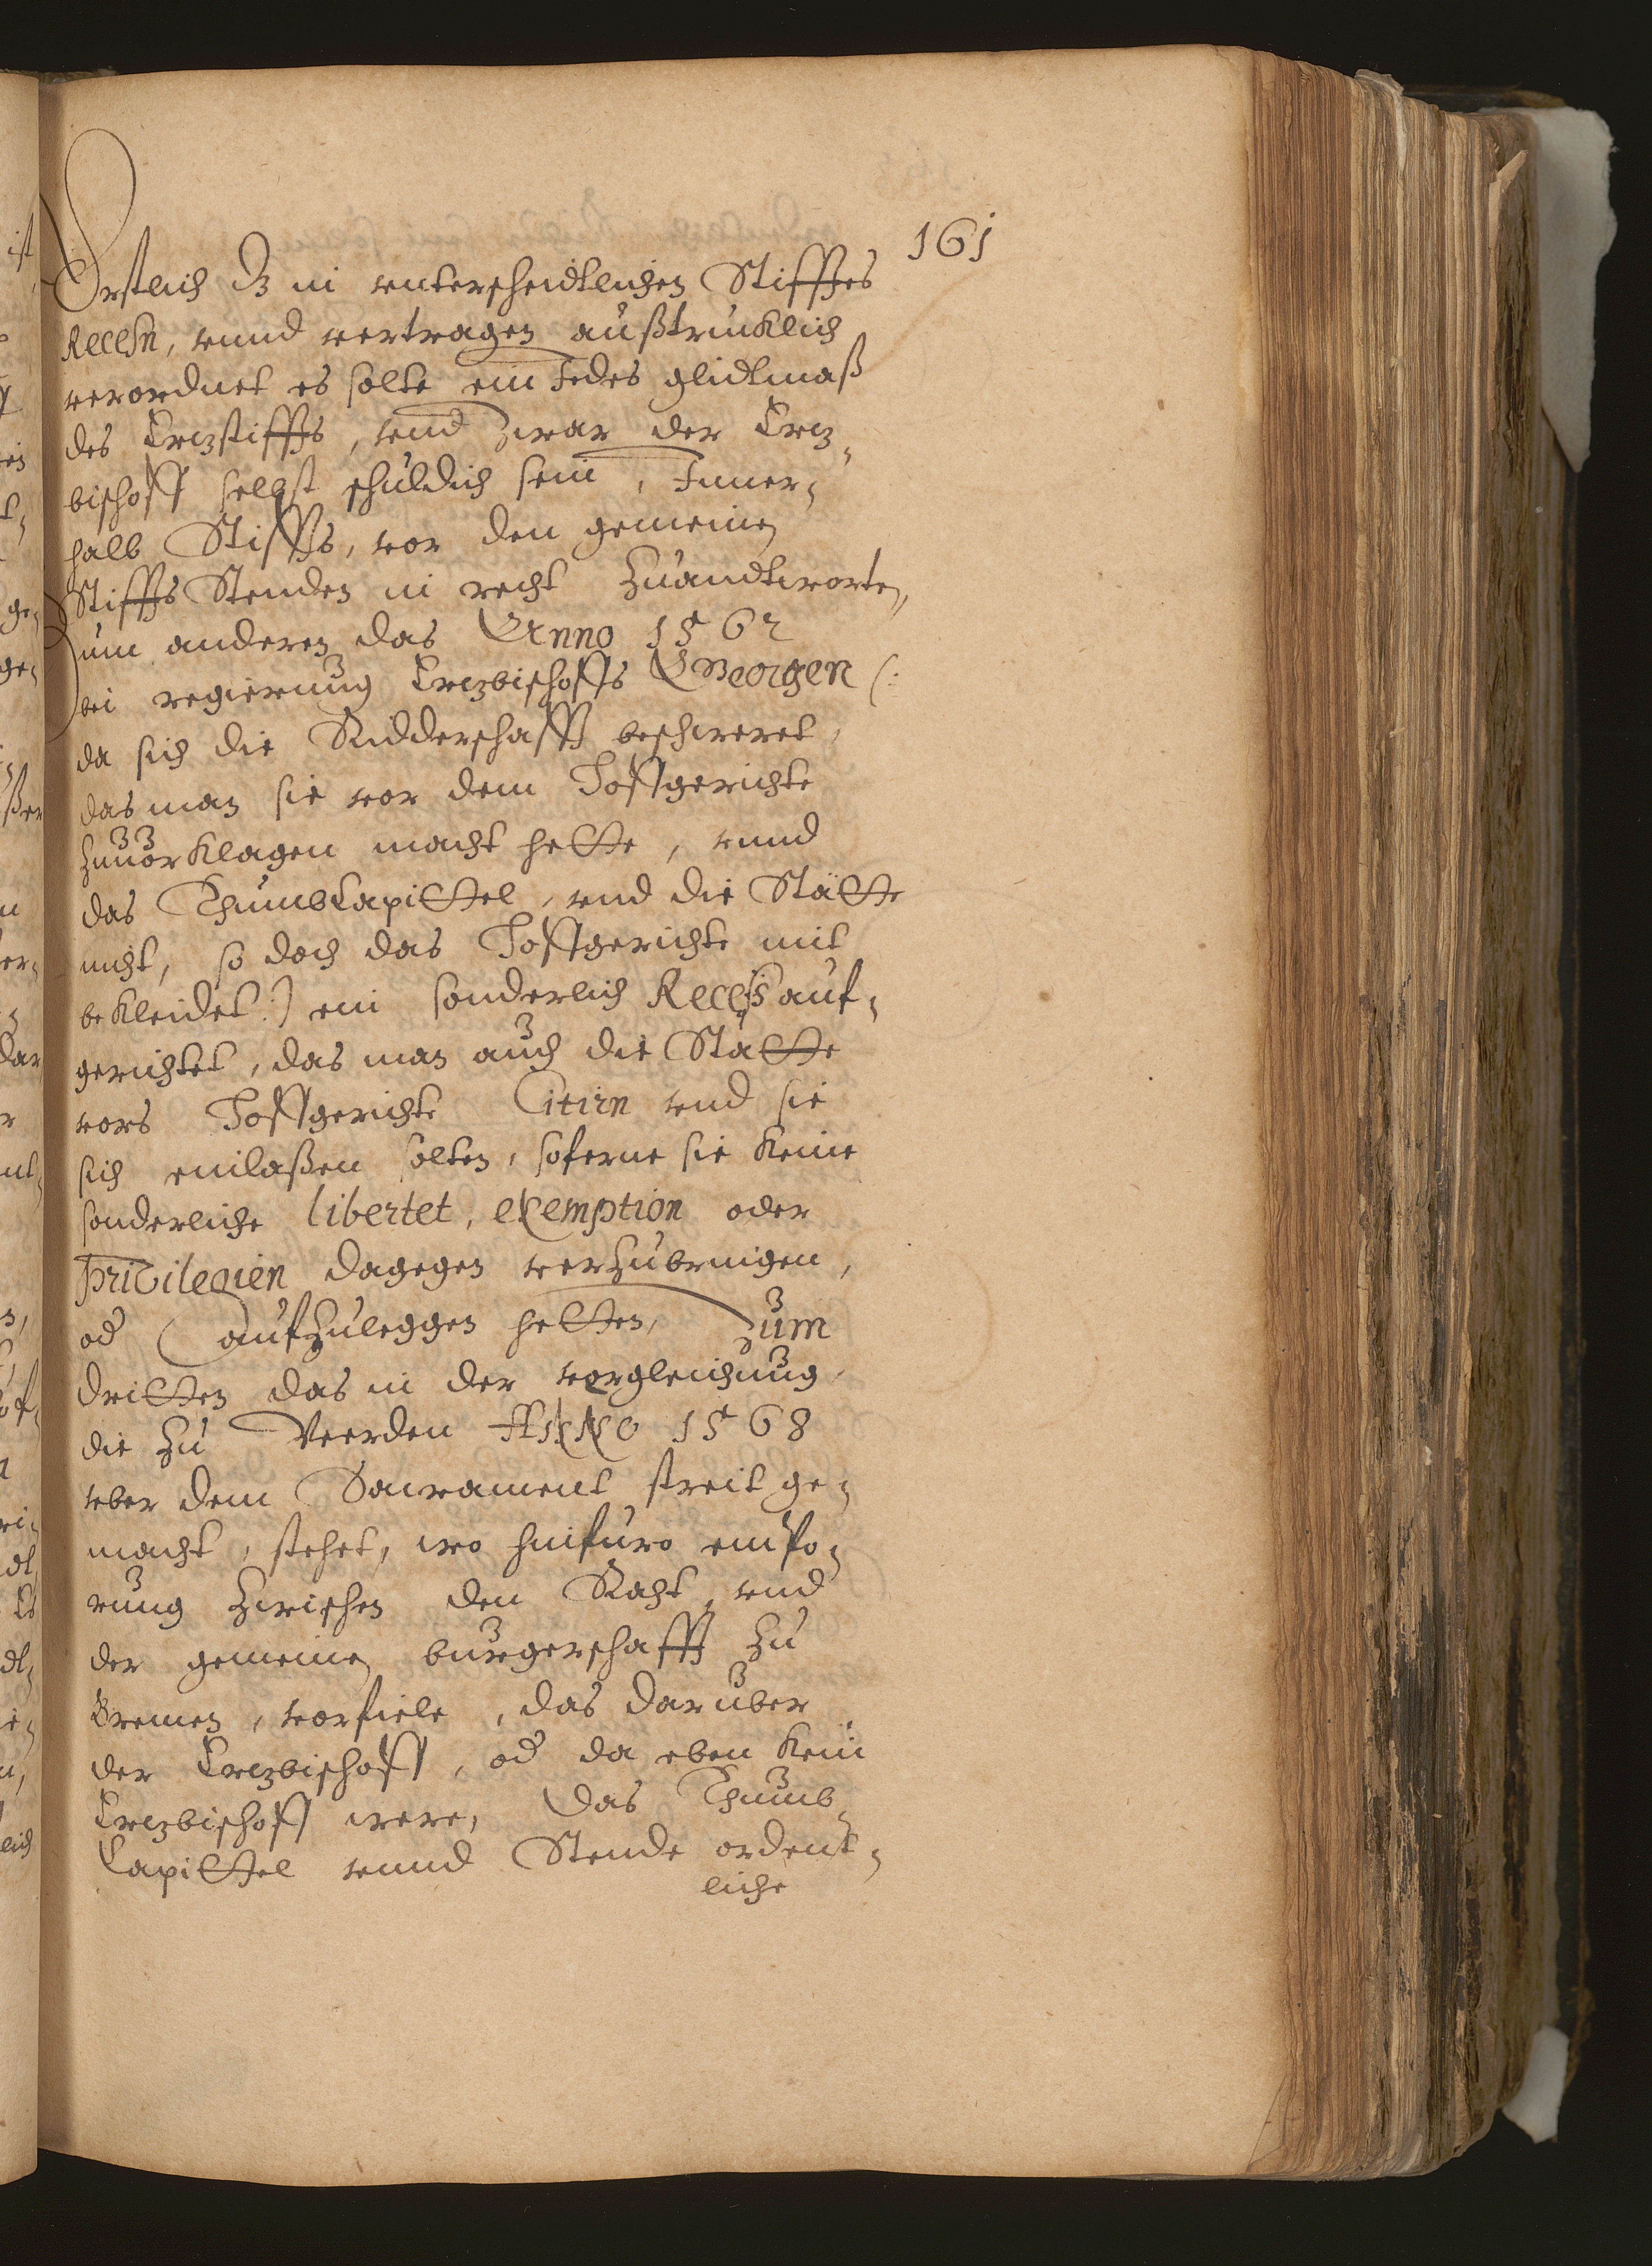 161
Erstlich dz in vnterscheidtlichen Stifftes
Recessn, vnnd vertragen außtrucklich
verordnet es solte ein Jedes glidtmaß
des Ertzstiffts, vnd zwar der Ertz-
bischoff selbst schuldich sein, Inner-
halb Stiffts, vor den gemeinen
Stiffts Stenden in recht Zuandtworten,
Zum anderen das Anno 1562
bei regierung Ertzbischoffs Georgen (:
da sich die Ridderschafft beschweret,
das man sie vor dem Hoffgerichte
Zuuorklagen macht hette, vnnd
das ThumbCapittel, vnd die Stätte
nicht, so doch das Hoffgerichte mit
bekleidet:) ein sonderlich Recess auf-
gerichtet, das man auch die Stätte
vors Hoffgerichte Citirn vnd sie
sich einlaßen solten, soferne sie keine
sonderliche libertet, exemption oder
Privilegien dagegen vorzubringen,
od aufzuleggen hetten, Zum
dritten das in der vorgleichung,
die Zu Veerden ANNO 1568
vber dem Sacrament streit ge-
macht, stehet, wo hinfuro empo-
rung Zwischen den Raht, vnd
der gemeinen burgerschafft Zu
Bremen, vorfiele, das daruber
der Ertzbischoff, od da eben kein
Ertzbischoff were, das Thumb-
Capittel vnnd Stende ordent-
liche